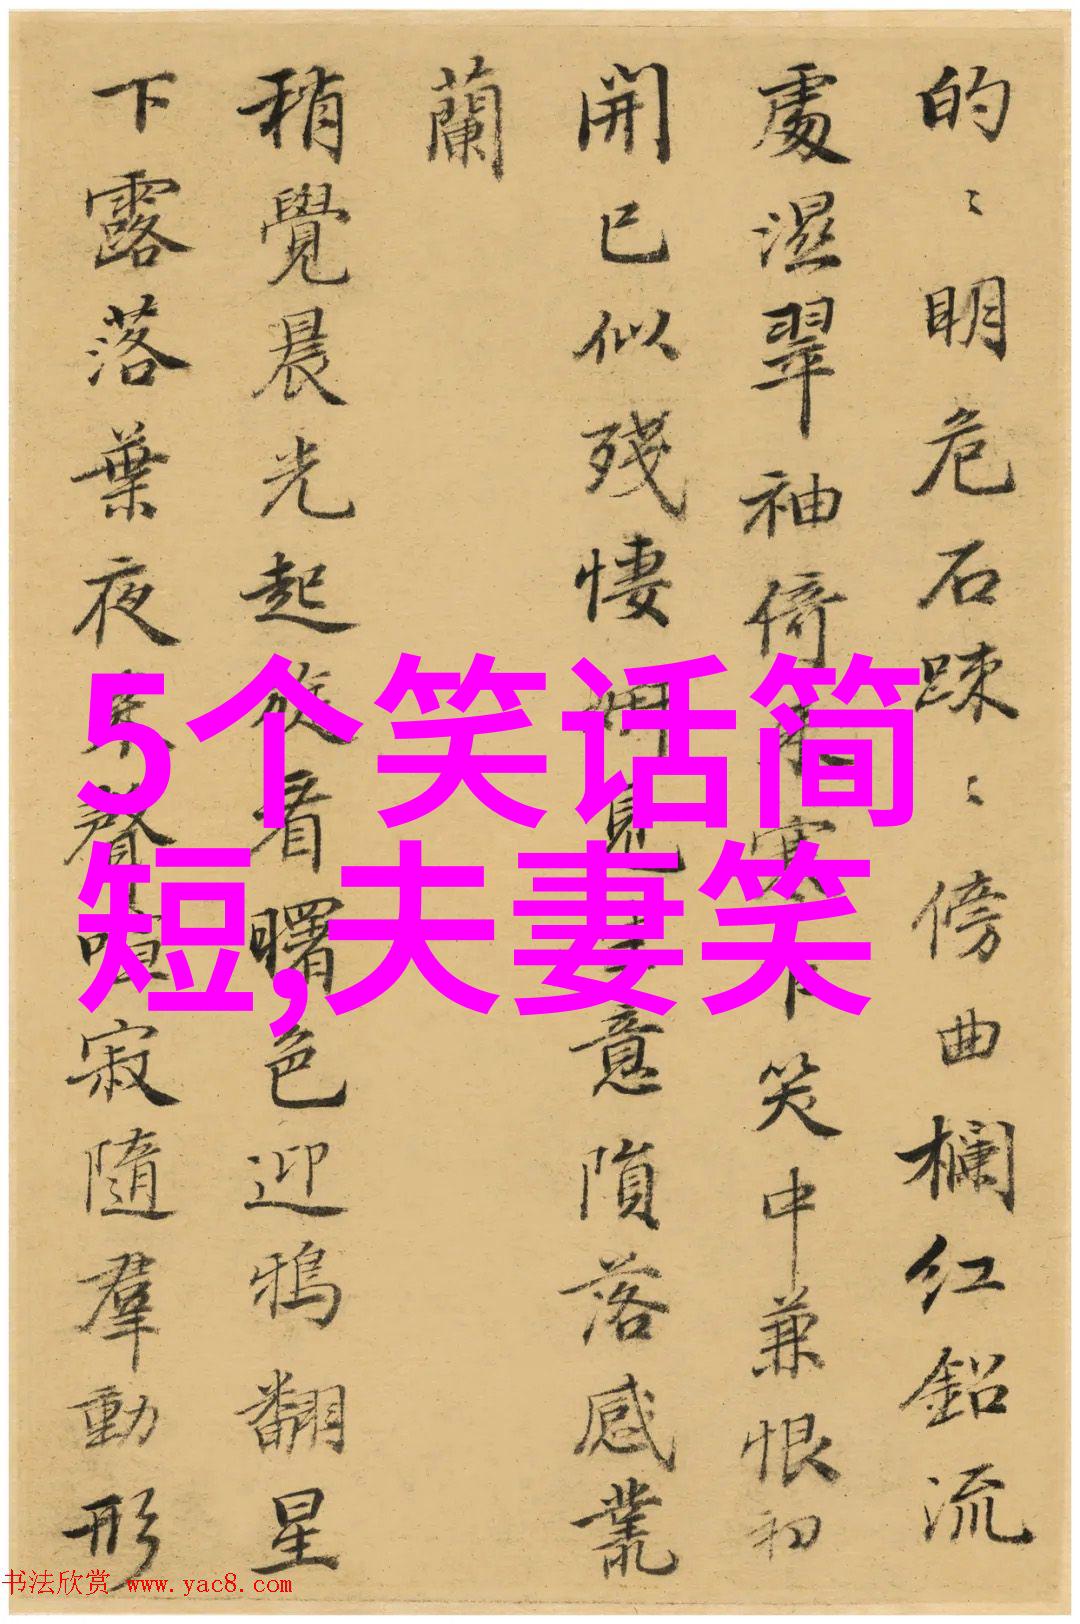 的〻明危石踈〻傍曲欄红鉛流
處濕翠袖倚寒笑中兼恨初
開已似殘悽見意隕落感叢
蘭
稍覺晨光起旋看曙色迎鴉翻星
下露落葉夜聲喧寂隨羣動形
5个笑话简
短,夫妻笑
书法欣赏 www.yac8.com